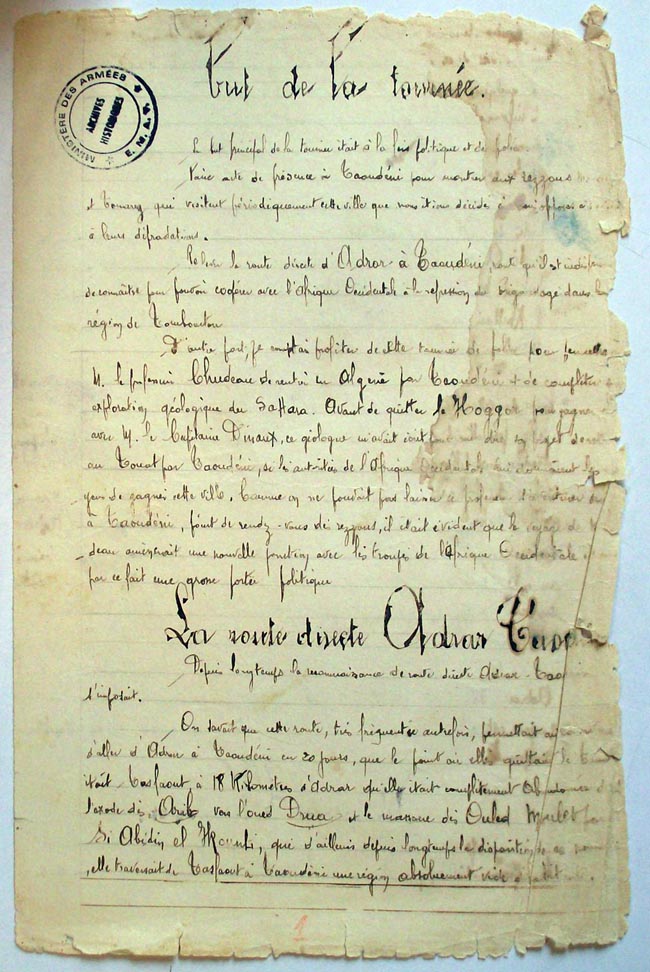 But de la tournée.
MINISTÈRE DES ARMÉES ★ E.M.A.T. ★
ARCHIVES
HISTORIQUES
Le but principal de la tournée était à la fois politique et de
Faire acte de présence à Taoudéni pour montrer aux rezzous
et Touareg qui visitent périodiquement cette ville que nous étions décidé à
à leurs déprédations.
Relever la route directe d'Adrar à Taoudéni, route qu'il est
de connaître pour pouvoir coopérer avec l'Afrique Occidentale à la répression du brigandage dans la
région de Tombouctou
D'autre part, je comptais profiter de cette tournée de police pour
M. le professeur Chudeau de rentrer en Algérie par Taoudéni et de compléter
exploration géologique du Sahara. Avant de quitter le Hoggar
avec M. le Capitaine Dinaux, ce géologue m'avait
au Touat par Taoudéni, si les autorités de l'Afrique Occidentale lui
yens de gagner cette ville. Comme on ne pouvait pas laisser ce professeur
à Taoudéni, point de rendez-vous des rezzous, il était évident que le voyage de
deau amènerait une nouvelle jonction avec les troupes de l'Afrique Occidentale
par ce fait une grosse portée politique
La route directe Adrar
Depuis longtemps la reconnaissance de route directe Adrar -
s'imposait.
On savait que cette route, très fréquentée autrefois, permettait
d'aller d'Adrar à Taoudéni en 20 jours, que le point où elle quittait le
était Tasfaout, à 18 Kilomètres d'Adrar qu'elle était complètement
l'exode des Arib vers l'oued Draa et le massacre des Ouled
Si Abidin el Kounti, que d'ailleurs depuis longtemps la disparition de
, elle traversait de Tasfaout à Taoudéni une région absolument vide
1